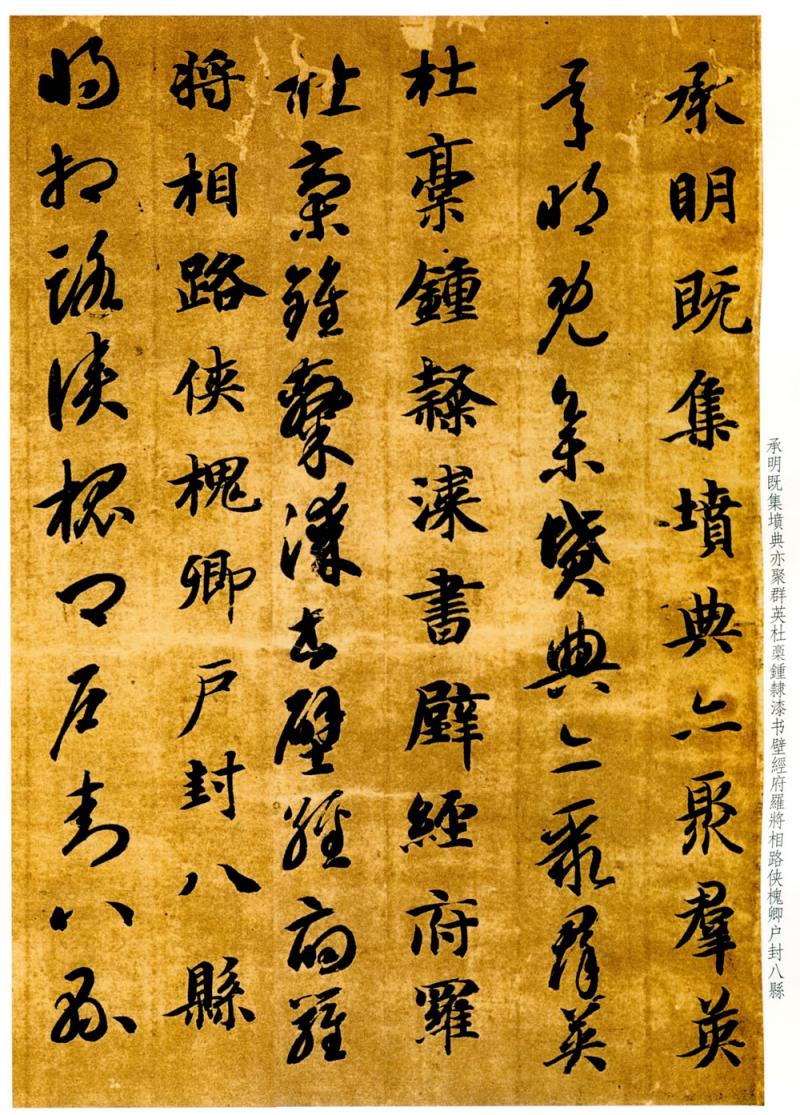 承明既集墳典亦聚羣英
承明既集墳典亦聚群英
杜稾鍾隸漆書壁經府羅
杜稾鍾隸漆書壁經府羅
將相路俠槐卿户封八縣
將相路俠槐卿户封八縣
承明既集墳典亦聚群英杜稾鍾隸漆书壁經府羅將相路侠槐卿户封八縣